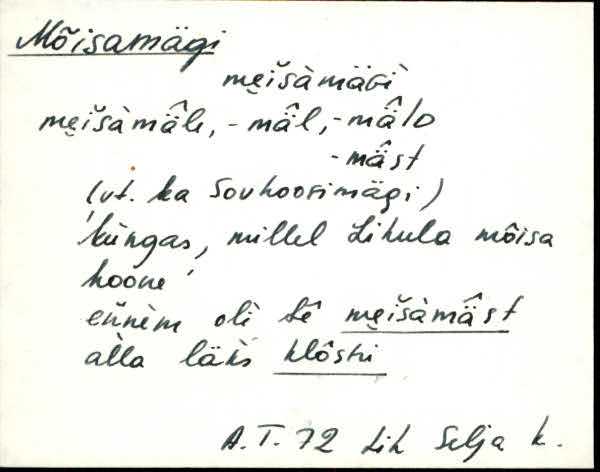 Mõisamägi
me̮išàmäɢì
me̮išàmä̂le, -mä̂l, -mä̂lᴅ
-mä̂st
(vt. ka Sovhoosimägi)
'küngas, millel Lihula mõisa
hoone'
ennèm oli tê me̮išàmä̂st
alla läks klôstri
A.T. 72 Lih Selja k.